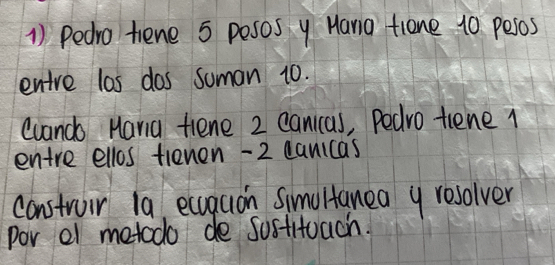 1) Pedro tiene 5 pesos y Maria tiene 10 pesos
entre los dos suman 10.
Cuando Maria tiene 2 canicas, Pedro tiene 1
entre ellos tienen -2 canicas
Construir la ecuación simultanea y resolver
por el metodo de sustitución.